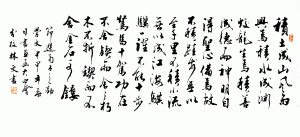 積土成山風雨
興焉積水成渊
蛟龍生焉積善
成德而神明自
得聖心備焉故
不積跬步無以
至千里不積小流
無以成江海騏
驥一躍不能十步
駑馬十駕功在
不舍鍥而舍之朽
木不折鍥而不
舍金石可鏤
節選荀子之勸